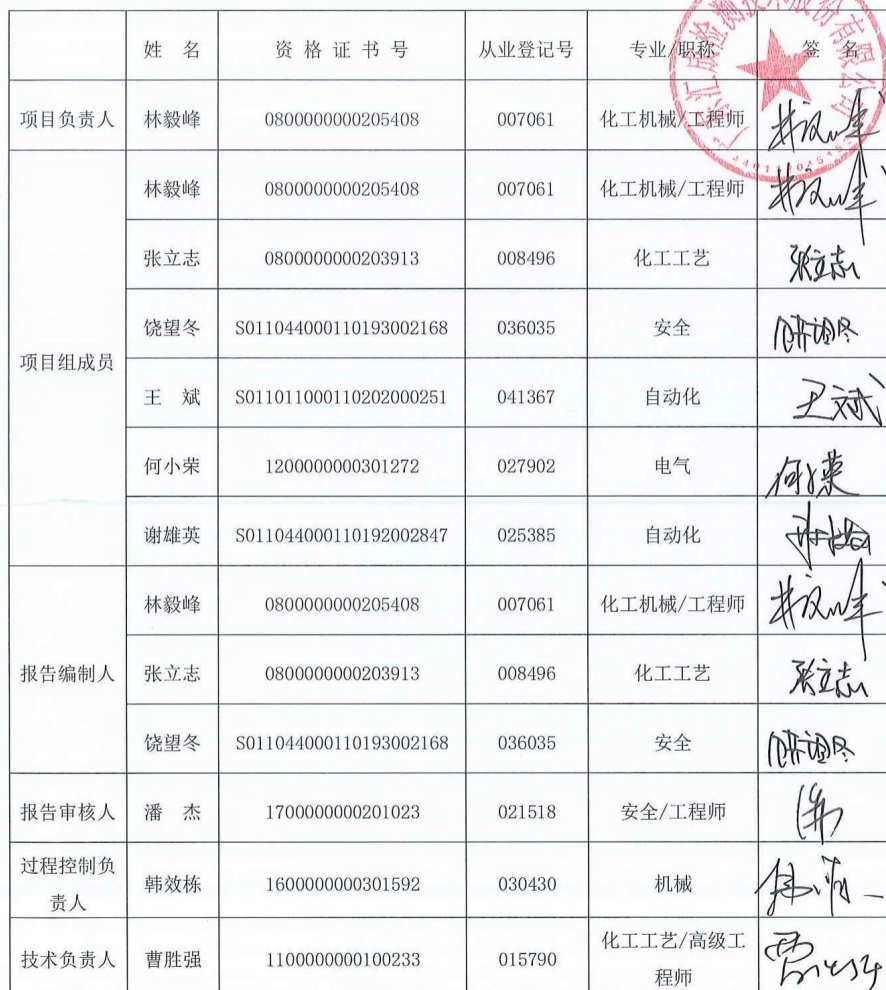 姓 名 资 格 证 书 号 从业登记号 专业/职称 签 名
项目负责人 林毅峰 0800000000205408 007061 化工机械/工程师
项目组成员
林毅峰 0800000000205408 007061 化工机械/工程师
张立志 0800000000203913 008496 化工工艺 张立志
饶望冬 S011044000110193002168 036035 安全 饶望冬
王 斌 S011011000110202000251 041367 自动化 王斌
何小荣 1200000000301272 027902 电气 何小荣
谢雄英 S011044000110192002847 025385 自动化
报告编制人
林毅峰 0800000000205408 007061 化工机械/工程师
张立志 0800000000203913 008496 化工工艺 张立志
饶望冬 S011044000110193002168 036035 安全 饶望冬
报告审核人 潘 杰 1700000000201023 021518 安全/工程师
过程控制负
责人 韩效栋 1600000000301592 030430 机械
技术负责人 曹胜强 1100000000100233 015790 化工工艺/高级工
程师
汇成检测技术股份有限公司